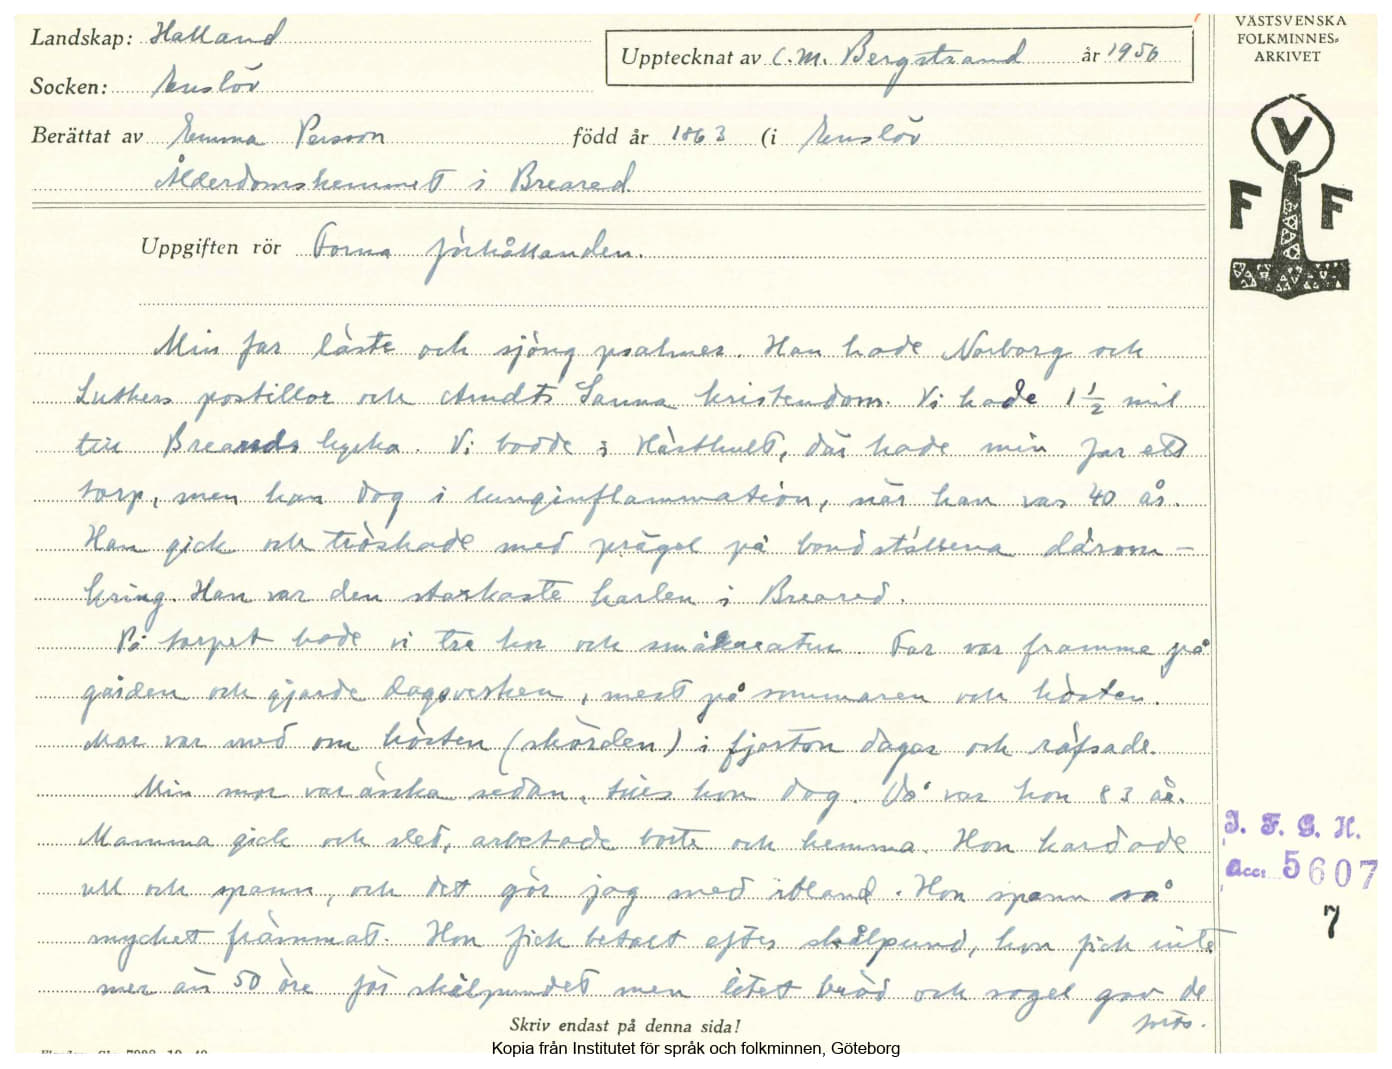 Landskap: Halland
Upptecknat av C.M. Bergstrand år 1950
VÄSTSVENSKA
FOLKMINNES-
ARKIVET
Socken: Enslöv
Berättat av Emma Persson född år 1863 (i Enslöv
Ålderdomshemmet i Breared
V
F F
Uppgiften rör Forna förhållanden.
Min far läste och sjöng psalmer. Han hade Norborg och
Luthers postillor och Arndts Sanna kristendom. Vi hade 1 1/2 mil
till Breareds kyrka. Vi bodde i Hästhult, där hade min far ett
torp, men han dog i lunginflammation, när han var 40 år.
Han gick och tröskade med prägel på bondställena därom-
kring. Han var den starkaste karlen i Breared.
På torpet hade vi tre kor och småkreatur. Far var framme på
gården och gjorde dagsverken, mest på sommaren och hösten.
Mor var med om hösten (skörden) i fjorton dagar och räfsade.
Min mor var änka sedan, tills hon dog. Då var hon 83 år.
Mamma gick och sled, arbetade borte och hemma. Hon kardade
ull och spann, och det gör jag med ibland. Hon spann så
mycket främmat. Hon fick betalt efter skålpund, hon fick inte
mer än 50 öre för skålpundet men litet bröd och sogel gav de
Skriv endast på denna sida!
I. F. G. H.
Acc: 5607
7
Kopia från Institutet för språk och folkminnen, Göteborg